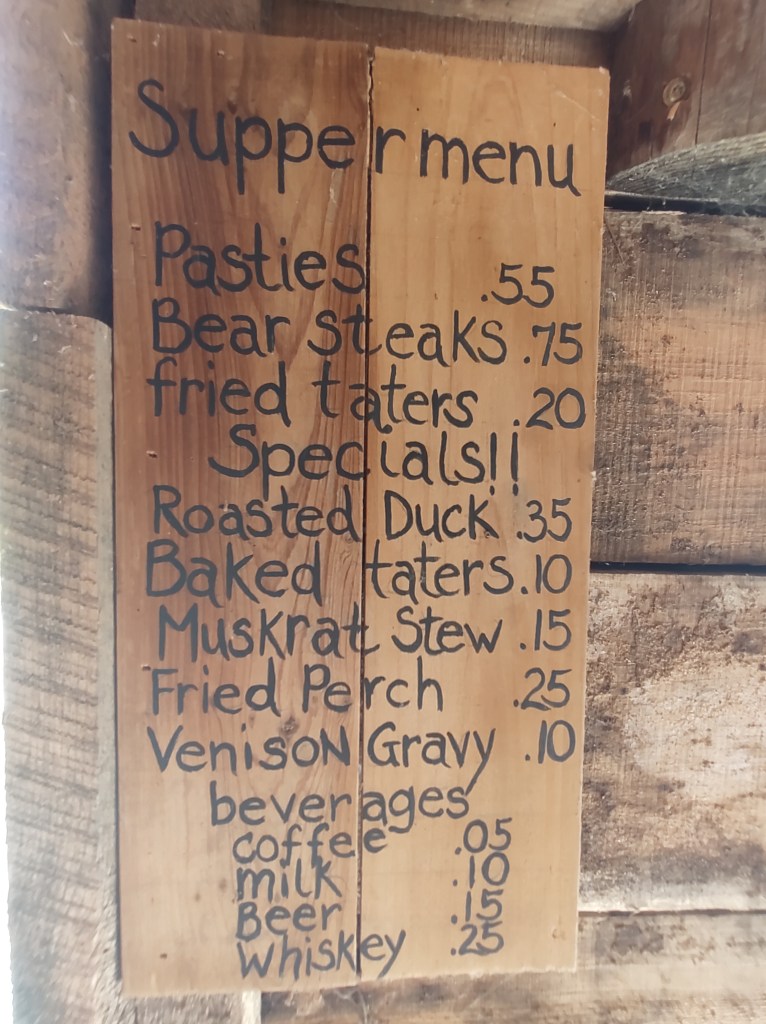 Supper menu
Pasties .55
Bear steaks .75
fried taters .20
Specials!!
Roasted Duck .35
Baked taters .10
Muskrat Stew .15
Fried Perch .25
Venison Gravy .10
beverages
coffee .05
milk .10
Beer .15
whiskey .25